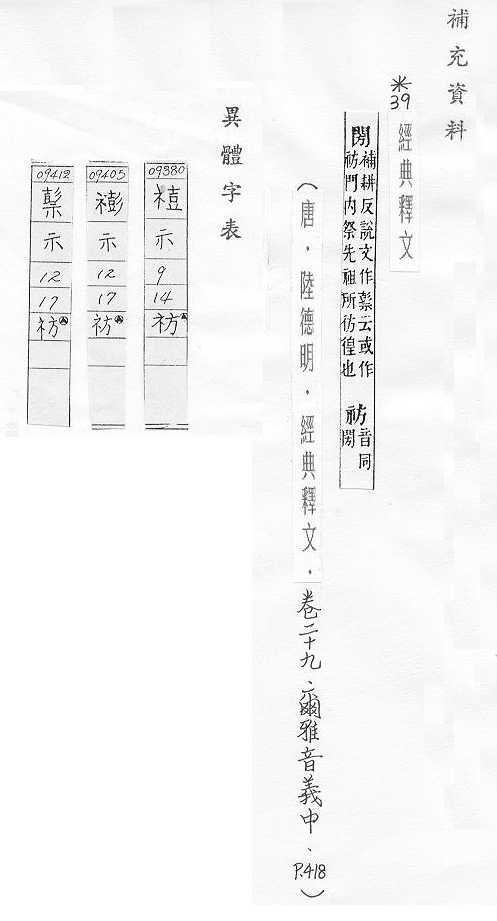 補充資料
※39
經典釋文
閍 補耕反說文作𥛱云或作
祊門內祭先祖所彷徨也 祊 音同
閍
（唐．陸德明．經典釋文．卷二十九、爾雅音義中、P.418）
異體字表
09380
示
9
14
祊
09405
示
12
17
祊
09412
𥛱
示
12
17
祊